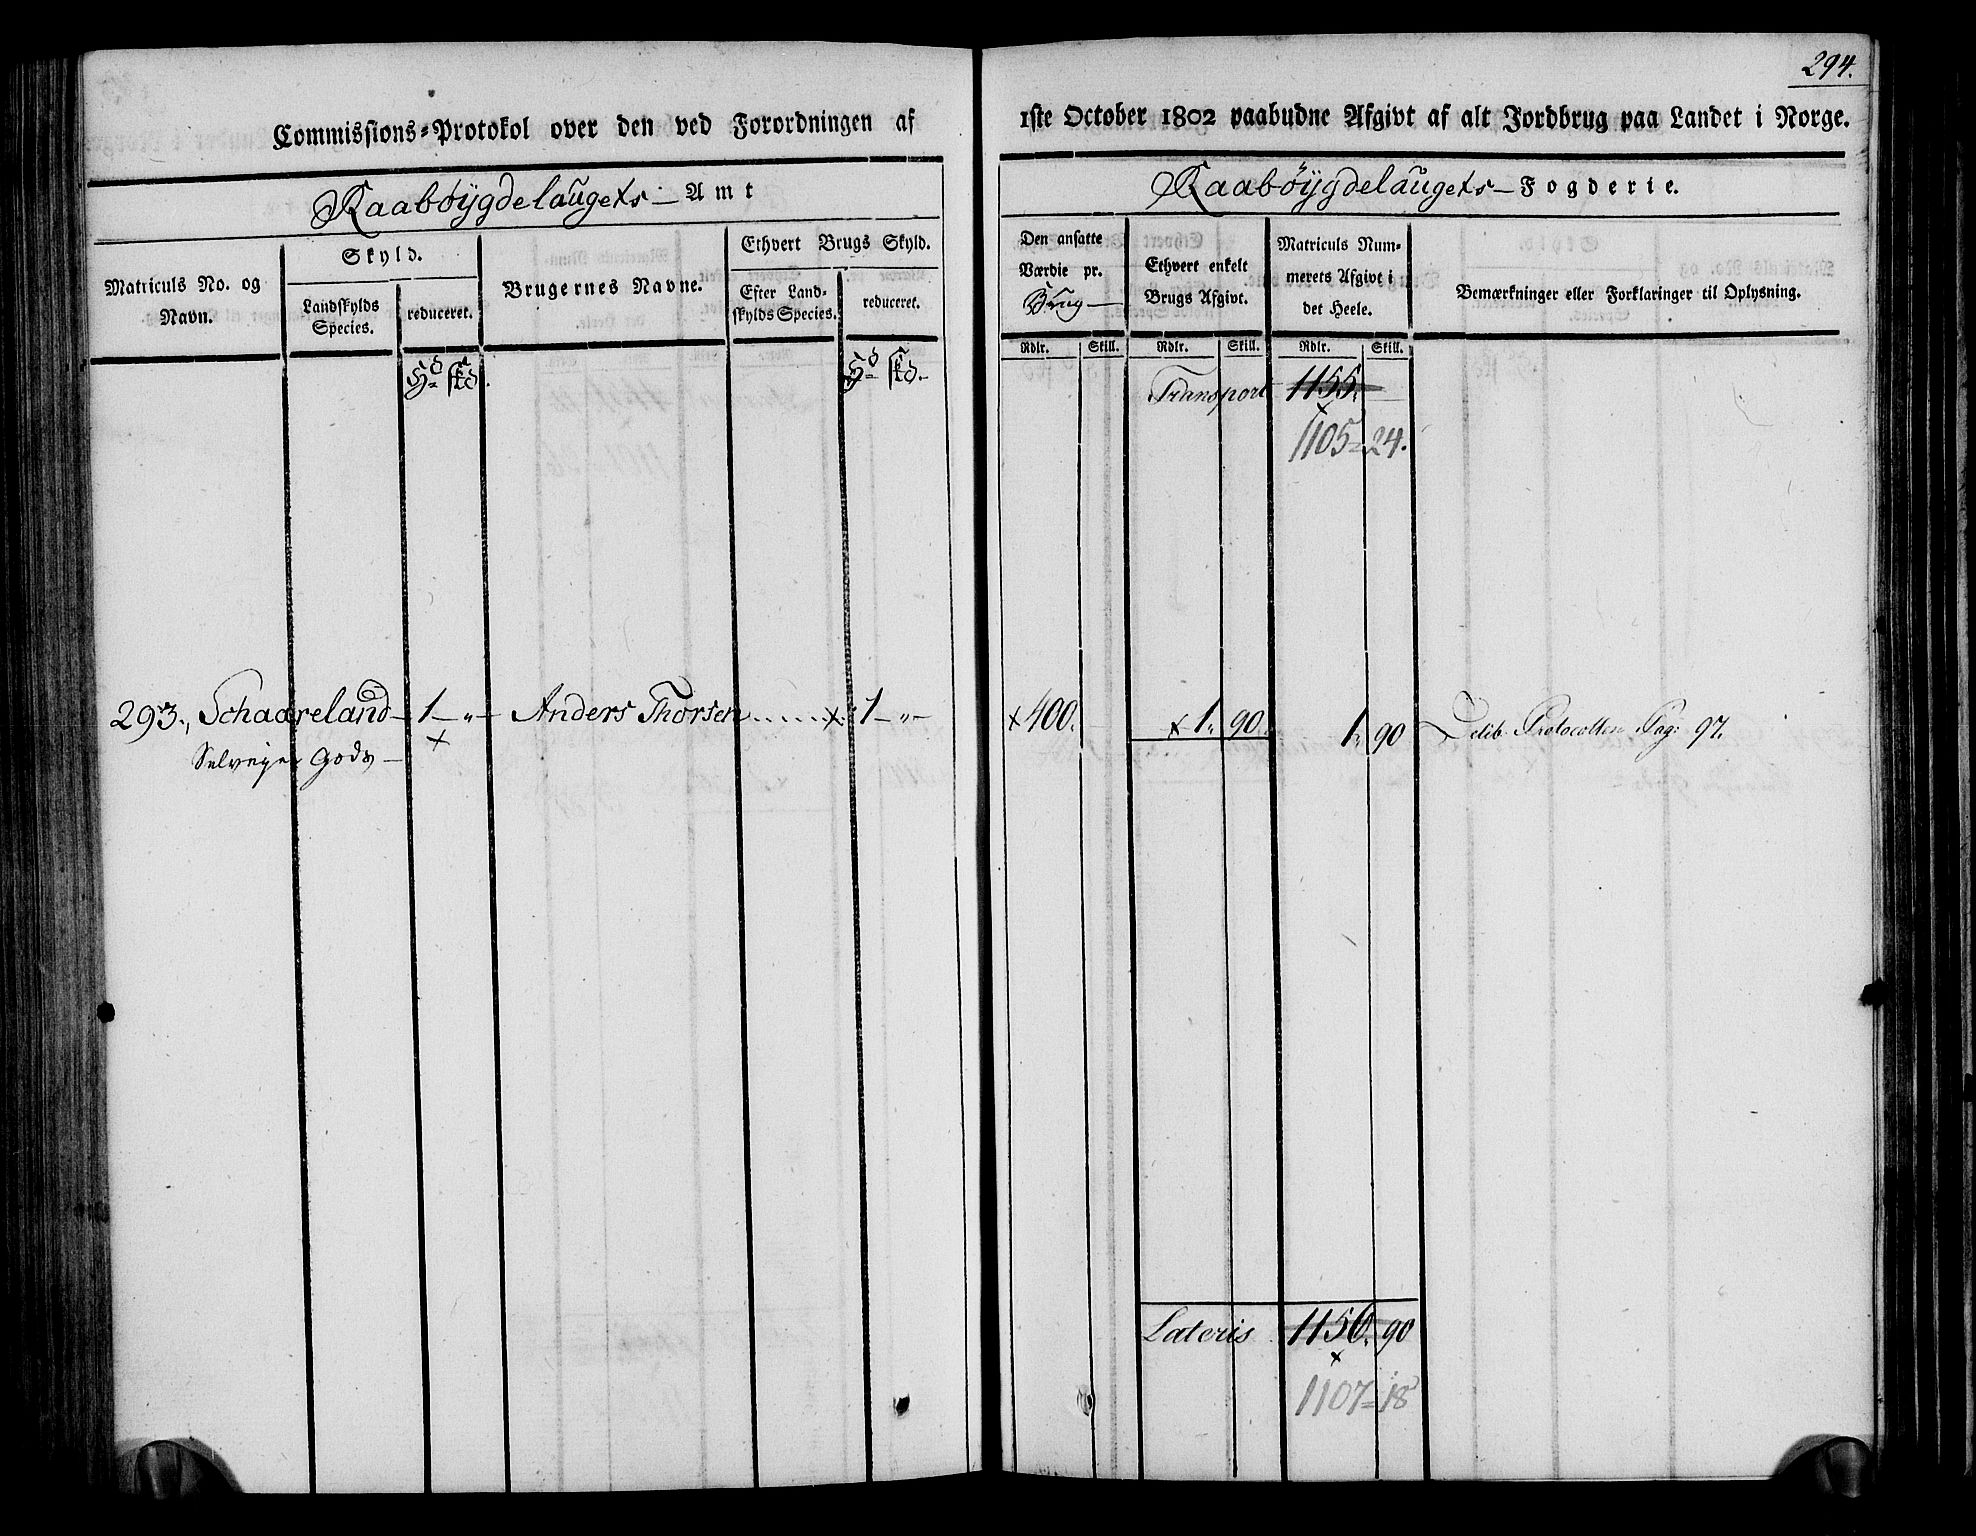 294.
Commissions-Protokol over den ved Forordningen af 1ste October 1802 paabudne Afgivt af alt Jordbrug paa Landet i Norge.
Raabøygdelaugets Amt
Raabøygdelaugets Fogderie.
Matriculs No. og Navn.
Skyld.
Landskylds Species.
reduceret.
Brugernes Navne.
Ethvert Brugs Skyld.
Efter Landskylds Species.
reduceret.
Den ansatte Værdie pr.
Ethvert enkelt Brugs Afgivt.
Matriculs Nummerets Afgivt i det Heele.
Bemærkninger eller Forklaringer til Oplysning.
Rdlr. Skill. Rdlr. Skill. Rdlr. Skill.
Transport 1155.
1105 = 24.
293., Schaareland – 1 – „ – Anders Thorsen ...... x 1 – „ – x 400. x 1„ 90. 1„ 90 Delib. Protocollen Pag: 97.
x
Selveyer Gods –
Lateris 1156. 90
x
1107 = 18